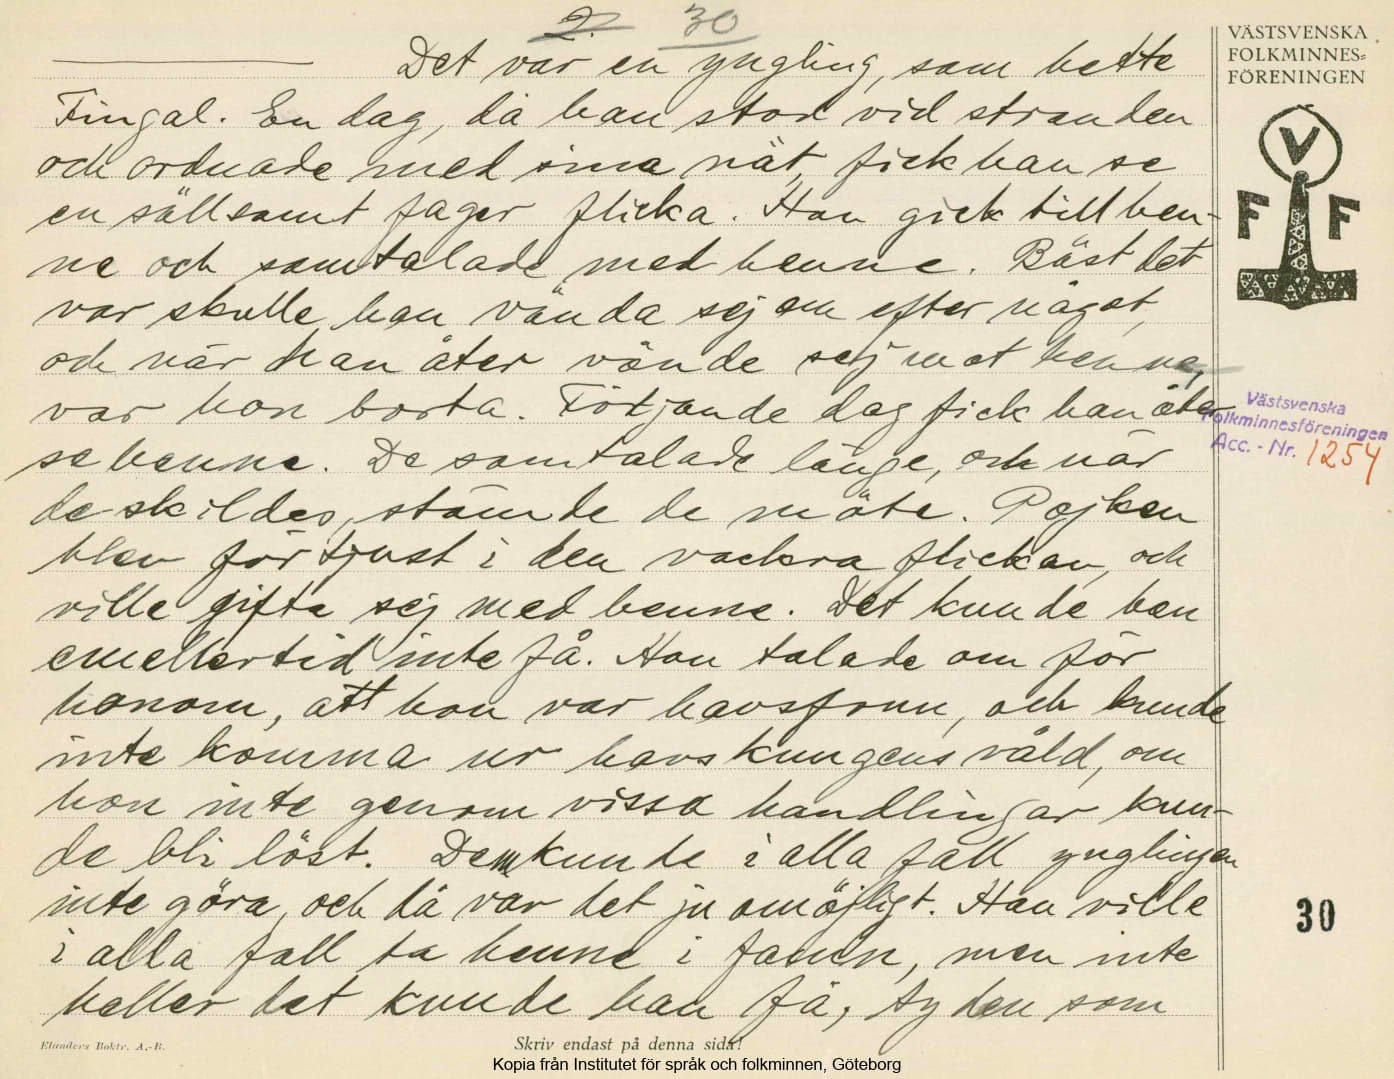 2. 30
Det var en yngling, som hette
Fingal. En dag, då han stod vid stranden
och ordnade med sina nät, fick han se
en sällsamt fager flicka. Han gick till hen-
ne och samtalade med henne. Bäst det
var skulle han vända sej om efter något,
och när han åter vände sej mot henne,
var hon borta. Följande dag fick han åter
se henne. De samtalade länge, och när
de skildes, stämde de möte. Pojken
blev förtjust i den vackra flickan, och
ville gifta sej med henne. Det kunde han
emellertid inte få. Hon talade om för
honom, att hon var havsfrun, och kunde
inte komma ur havskungens våld, om
hon inte genom vissa handlingar kun-
de bli löst. Dem kunde i alla fall ynglingen
inte göra, och då var det ju omöjligt. Han ville
i alla fall ta henne i famn, men inte
heller det kunde han få, ty den som
VÄSTSVENSKA
FOLKMINNES=
FÖRENINGEN
V
F F
Västsvenska
Folkminnesföreningen
Acc. - Nr. 1254
30
Elanders Boktr. A.-B.
Skriv endast på denna sida!
Kopia från Institutet för språk och folkminnen, Göteborg